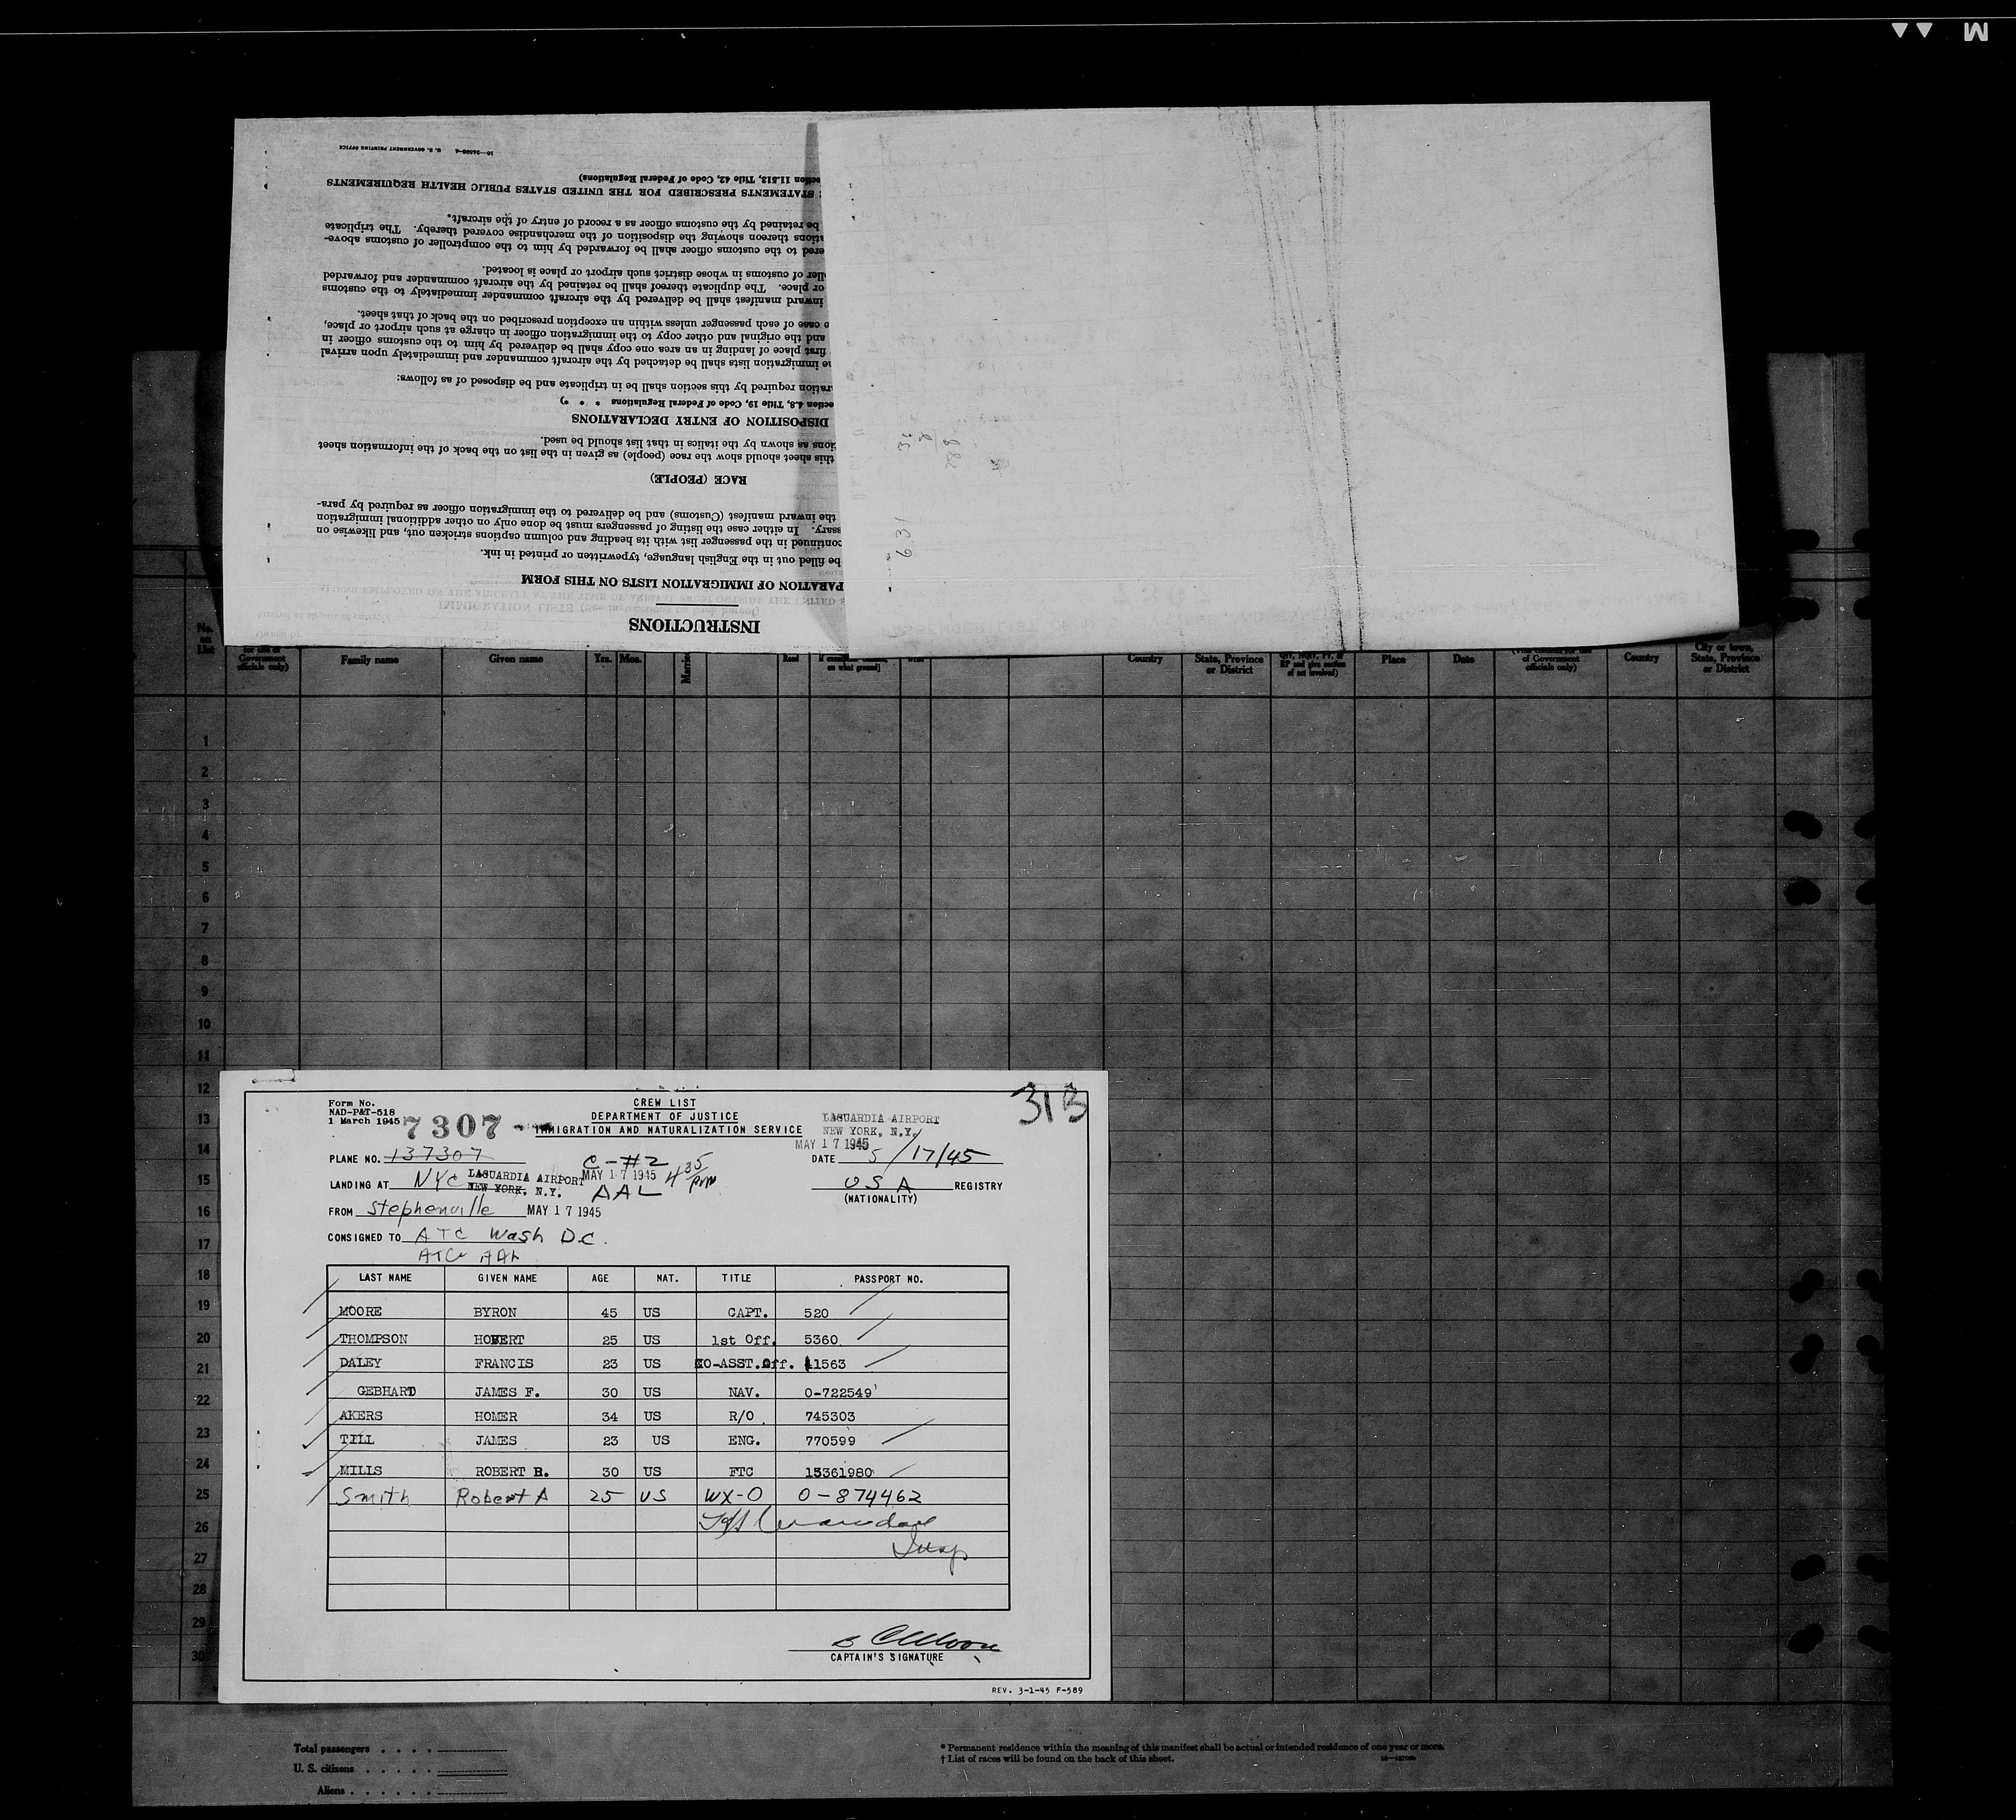 M
INSTRUCTIONS
PARATION OF IMMIGRATION LISTS ON THIS FORM
be filled out in the English language, typewritten or printed in ink.
continued in the passenger list with its heading and column captions stricken out, and likewise on
ssary. In either case the listing of passengers must be done only on other additional immigration
the inward manifest (Customs) and be delivered to the immigration officer as required by para-
RACE (PEOPLE)
this sheet should show the race (people) as given in the list on the back of the information sheet
tions as shown by the italics in that list should be used.
DISPOSITION OF ENTRY DECLARATIONS
ection 4.8, Title 19, Code of Federal Regulations * * *)
ration required by this section shall be in triplicate and be disposed of as follows:
he immigration lists shall be detached by the aircraft commander and immediately upon arrival
first place of landing in an area one copy shall be delivered by him to the customs officer in
and the original and other copy to the immigration officer in charge at such airport or place,
e case of each passenger unless within an exception prescribed on the back of that sheet.
inward manifest shall be delivered by the aircraft commander immediately to the customs
or place. The duplicate thereof shall be retained by the aircraft commander and forwarded
ller of customs in whose district such airport or place is located.
ered to the customs officer shall be forwarded by him to the comptroller of customs above-
ations thereon showing the disposition of the merchandise covered thereby. The triplicate
be retained by the customs officer as a record of entry of the aircraft.
STATEMENTS PRESCRIBED FOR THE UNITED STATES PUBLIC HEALTH REQUIREMENTS
ection 11.513, Title 42, Code of Federal Regulations)
U. S. GOVERNMENT PRINTING OFFICE
631
No. on List
Government officials only)
Family name
Given name
Yrs.
Mos.
Married
Read
on what ground]
Country
State, Province or District
RP and give section of act involved)
Place
Date
of Government officials only)
Country
City or town, State, Province or District
1
2
3
4
5
6
7
8
9
10
11
12
13
14
15
16
17
18
19
20
21
22
23
24
25
26
27
28
29
30
Form No.
NAD-P&T-518
1 March 1945
7307
CREW LIST
DEPARTMENT OF JUSTICE
IMMIGRATION AND NATURALIZATION SERVICE
LAGUARDIA AIRPORT
NEW YORK, N.Y.
MAY 17 1945
313
PLANE NO. 137307
C-#2
DATE 5/17/45
LANDING AT NYC LAGUARDIA AIRPORT
NEW YORK, N.Y.
MAY 17 1945
4 35 PM
AAL
USA REGISTRY
(NATIONALITY)
FROM Stephenville MAY 17 1945
CONSIGNED TO ATC Wash D.C.
LAST NAME GIVEN NAME AGE NAT. TITLE PASSPORT NO.
MOORE BYRON 45 US CAPT. 520
THOMPSON HOBERT 25 US 1st Off. 5360
DALEY FRANCIS 23 US CO-ASST.Off. 11563
GEBHARD JAMES F. 30 US NAV. 0-722549
AKERS HOMER 34 US R/O 745303
TILL JAMES 23 US ENG. 770599
MILLS ROBERT B. 30 US FTC 15361980
Smith Robert A 25 US WX-O O-874462
CAPTAIN'S SIGNATURE
REV. 3-1-45 F-589
Total passengers . . . .
U. S. citizens . . . . .
Aliens . . . . . .
* Permanent residence within the meaning of this manifest shall be actual or intended residence of one year or more.
† List of races will be found on the back of this sheet.